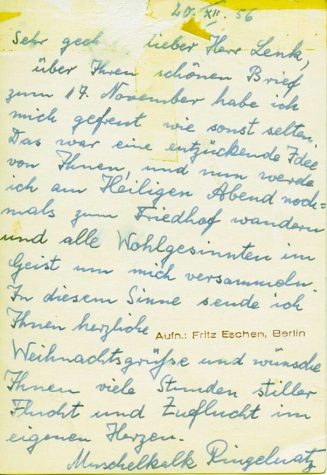 20. XII. 56
Sehr gee lieber Herr Lenk,
über Ihren schönen Brief
zum 17. November habe ich
mich gefreut wie sonst selten.
Das war eine entzückende Idee
von Ihnen, und nun werde
ich am Heiligen Abend noch=
mals zum Friedhof wandern
und alle Wohlgesinnten im
Geist um mich versammeln.
In diesem Sinne sende ich
Ihnen herzliche
Aufn.: Fritz Eschen, Berlin
Weihnachtsgrüße und wünsche
Ihnen viele Stunden stiller
Flucht und Zuflucht im
eigenen Herzen.
Muschelkalk Ringelnatz